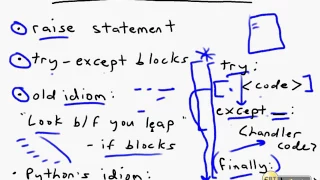 raise statement
try-except blocks
try:
<code>
old idiom:
except __:
"Look b/f you leap"
<handler code>
- if blocks
finally:
Python's idiom: